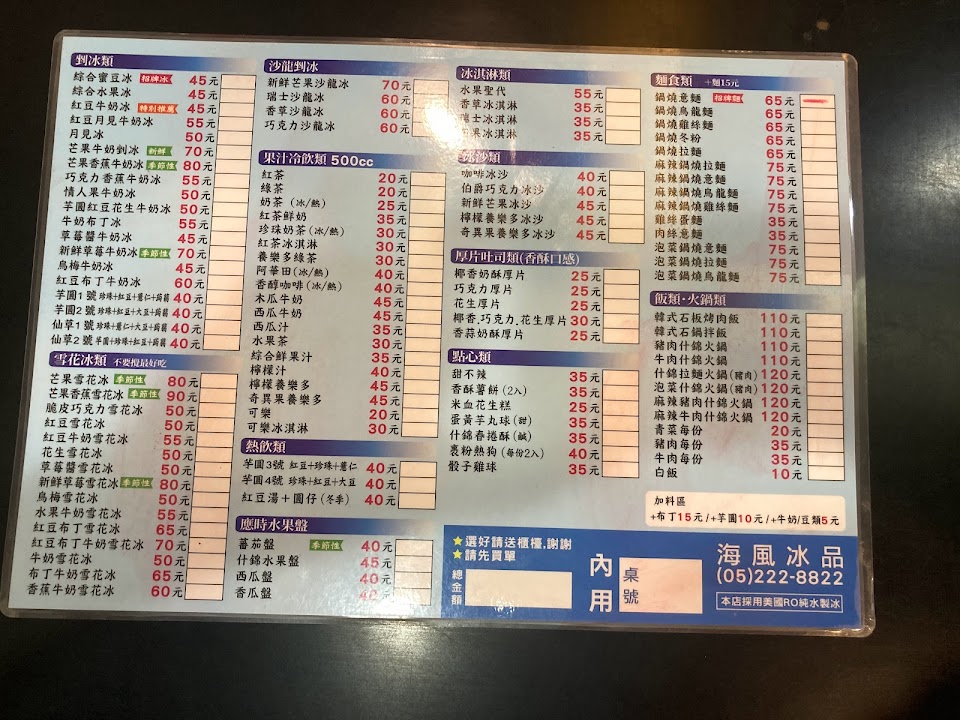 剉冰類
綜合蜜豆冰 招牌冰 45元
綜合水果冰 45元
紅豆牛奶冰 特別推薦 45元
紅豆月見牛奶冰 55元
月見冰 50元
芒果牛奶剉冰 新鮮 70元
芒果香蕉牛奶冰 季節性 80元
巧克力香蕉牛奶冰 55元
情人果牛奶冰 50元
芋圓紅豆花生牛奶冰 50元
牛奶布丁冰 55元
草莓醬牛奶冰 45元
新鮮草莓牛奶冰 季節性 70元
烏梅牛奶冰 45元
紅豆布丁牛奶冰 60元
芋圓1號 珍珠+紅豆+薏仁+蒟蒻 40元
芋圓2號 珍珠+紅豆+大豆+蒟蒻 40元
仙草1號 珍珠+薏仁+大豆+蒟蒻 40元
仙草2號 芋圓+珍珠+紅豆+蒟蒻 40元
雪花冰類 不要攪最好吃
芒果雪花冰 季節性 80元
芒果香蕉雪花冰 季節性 90元
脆皮巧克力雪花冰 50元
紅豆雪花冰 50元
紅豆牛奶雪花冰 55元
花生雪花冰 50元
草莓醬雪花冰 50元
新鮮草莓雪花冰 季節性 80元
烏梅雪花冰 50元
水果牛奶雪花冰 55元
紅豆布丁雪花冰 65元
紅豆布丁牛奶雪花冰 70元
牛奶雪花冰 50元
布丁牛奶雪花冰 65元
香蕉牛奶雪花冰 60元
沙龍剉冰
新鮮芒果沙龍冰 70元
瑞士沙龍冰 60元
香草沙龍冰 60元
巧克力沙龍冰 60元
果汁冷飲類 500cc
紅茶 20元
綠茶 20元
奶茶 (冰/熱) 25元
紅茶鮮奶 35元
珍珠奶茶(冰/熱) 30元
紅茶冰淇淋 30元
養樂多綠茶 30元
阿華田(冰/熱) 40元
香醇咖啡(冰/熱) 40元
木瓜牛奶 45元
西瓜牛奶 45元
西瓜汁 35元
水果茶 30元
綜合鮮果汁 35元
檸檬汁 40元
檸檬養樂多 45元
奇異果養樂多 45元
可樂 20元
可樂冰淇淋 30元
熱飲類
芋圓3號 紅豆+珍珠+薏仁 40元
芋圓4號 珍珠+紅豆+大豆 40元
紅豆湯+圓仔(冬季) 40元
應時水果盤
蕃茄盤 季節性 40元
什錦水果盤 45元
西瓜盤 40元
香瓜盤 40元
冰淇淋類
水果聖代 55元
香草冰淇淋 35元
瑞士冰淇淋 35元
果冰淇淋 35元
冰沙類
咖啡冰沙 40元
伯爵巧克力冰沙 40元
新鮮芒果冰沙 45元
檸檬養樂多冰沙 45元
奇異果養樂多冰沙 45元
厚片吐司類(香酥口感)
椰香奶酥厚片 25元
巧克力厚片 25元
花生厚片 25元
椰香,巧克力,花生厚片 30元
香蒜奶酥厚片 25元
點心類
甜不辣 35元
香酥薯餅(2入) 35元
米血花生糕 25元
蛋黃芋丸球(甜) 35元
什錦春捲酥(鹹) 35元
裹粉熱狗 (每份2入) 40元
骰子雞球 35元
麵食類 +麵15元
鍋燒意麵 招牌麵 65元
鍋燒烏龍麵 65元
鍋燒雞絲麵 65元
鍋燒冬粉 65元
鍋燒拉麵 65元
麻辣鍋燒拉麵 75元
麻辣鍋燒意麵 75元
麻辣鍋燒烏龍麵 75元
麻辣鍋燒雞絲麵 75元
雞絲蛋麵 35元
肉絲意麵 35元
泡菜鍋燒意麵 75元
泡菜鍋燒拉麵 75元
泡菜鍋燒烏龍麵 75元
飯類·火鍋類
韓式石板烤肉飯 110元
韓式石鍋拌飯 110元
豬肉什錦火鍋 110元
牛肉什錦火鍋 110元
什錦拉麵火鍋(豬肉) 120元
泡菜什錦火鍋(豬肉) 120元
麻辣豬肉什錦火鍋 120元
麻辣牛肉什錦火鍋 120元
青菜每份 20元
豬肉每份 35元
牛肉每份 35元
白飯 10元
加料區
+布丁15元/+芋圓10元/+牛奶/豆類5元
★選好請送櫃檯,謝謝
★請先買單
總金額
內用
桌號
海風冰品
(05)222-8822
本店採用美國RO純水製冰